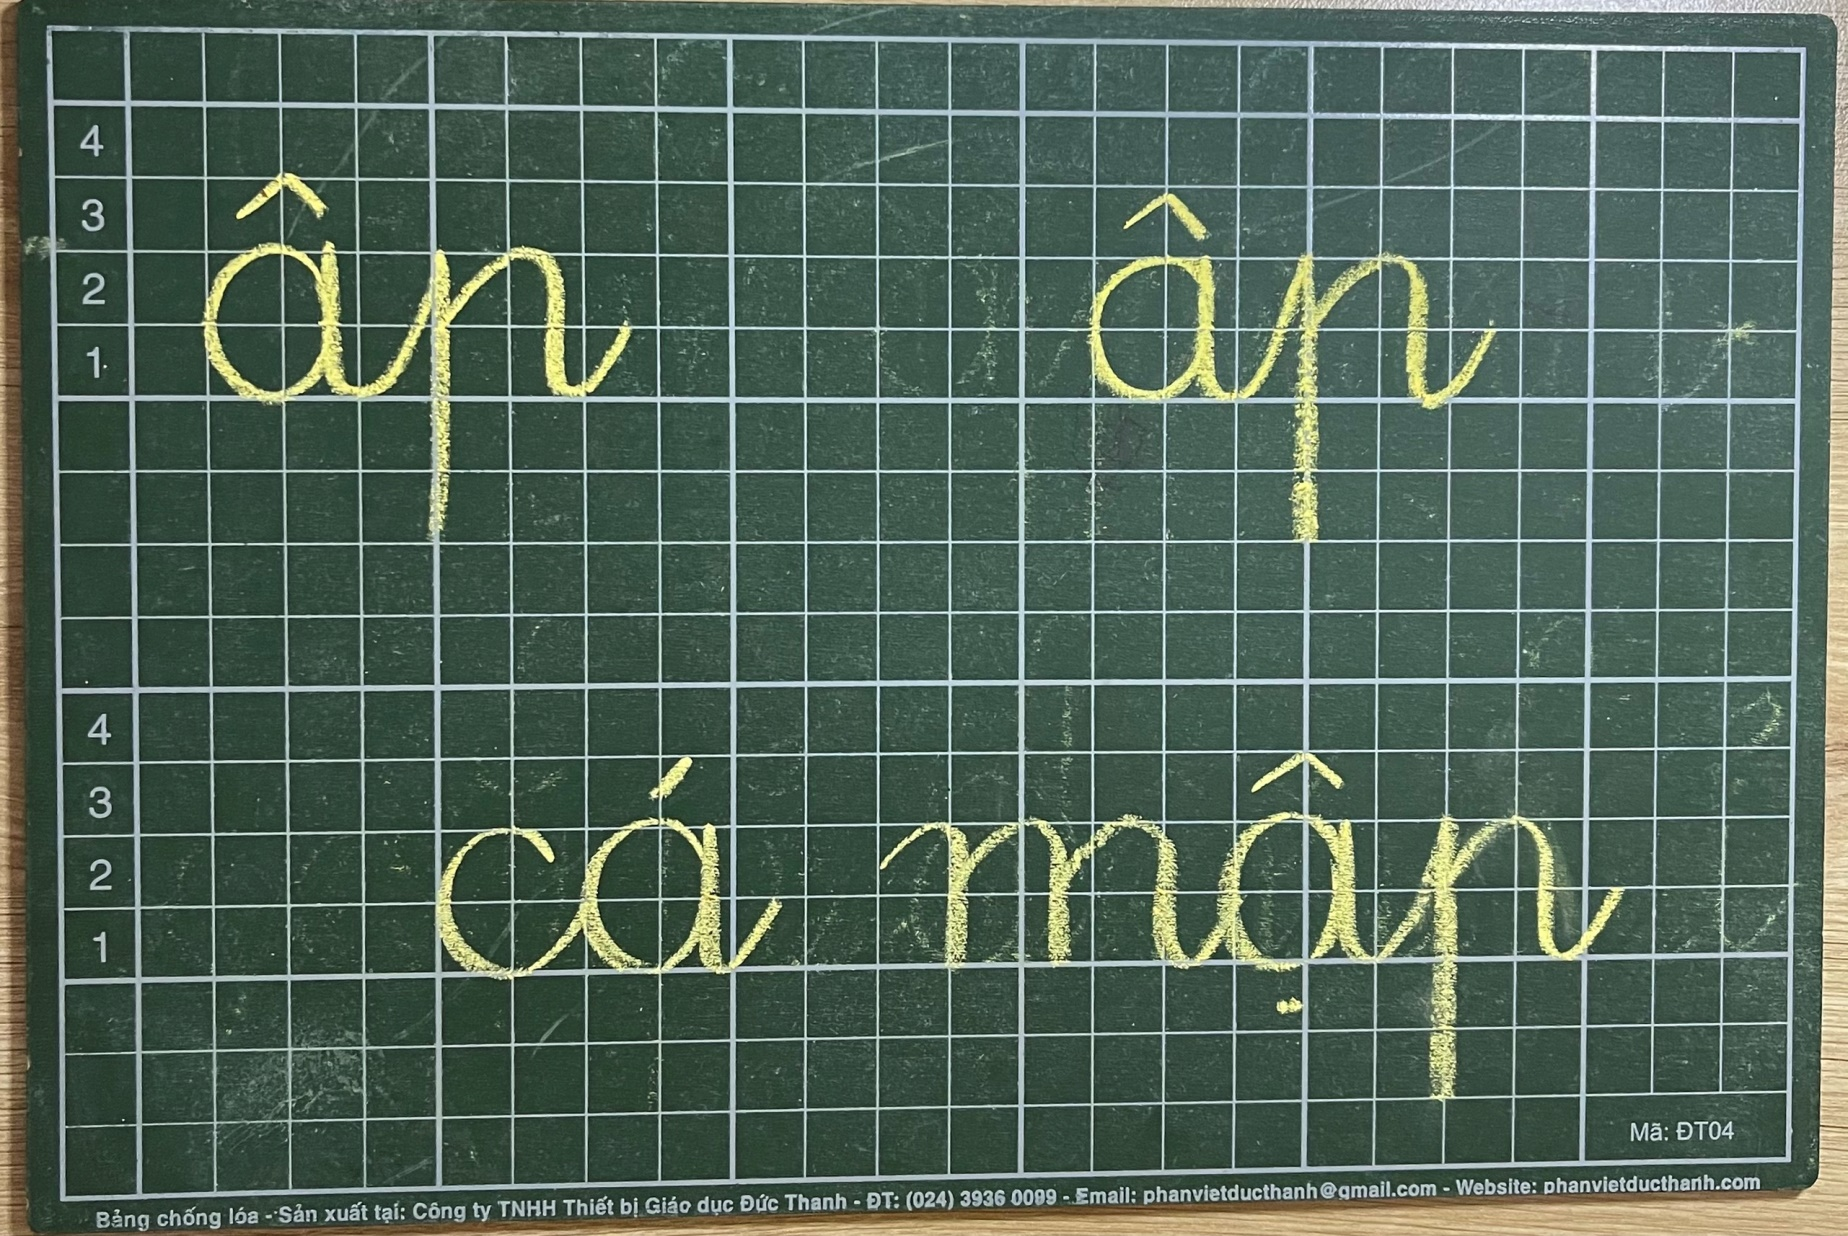 4
3
âp âp
2
1
4
3
cá mập
2
1
Mã: ĐT04
Bảng chống lóa - Sản xuất tại: Công ty TNHH Thiết bị Giáo dục Đức Thanh - ĐT: (024) 3936 0099 - Email: phanvietducthanh@gmail.com - Website: phanvietducthanh.com